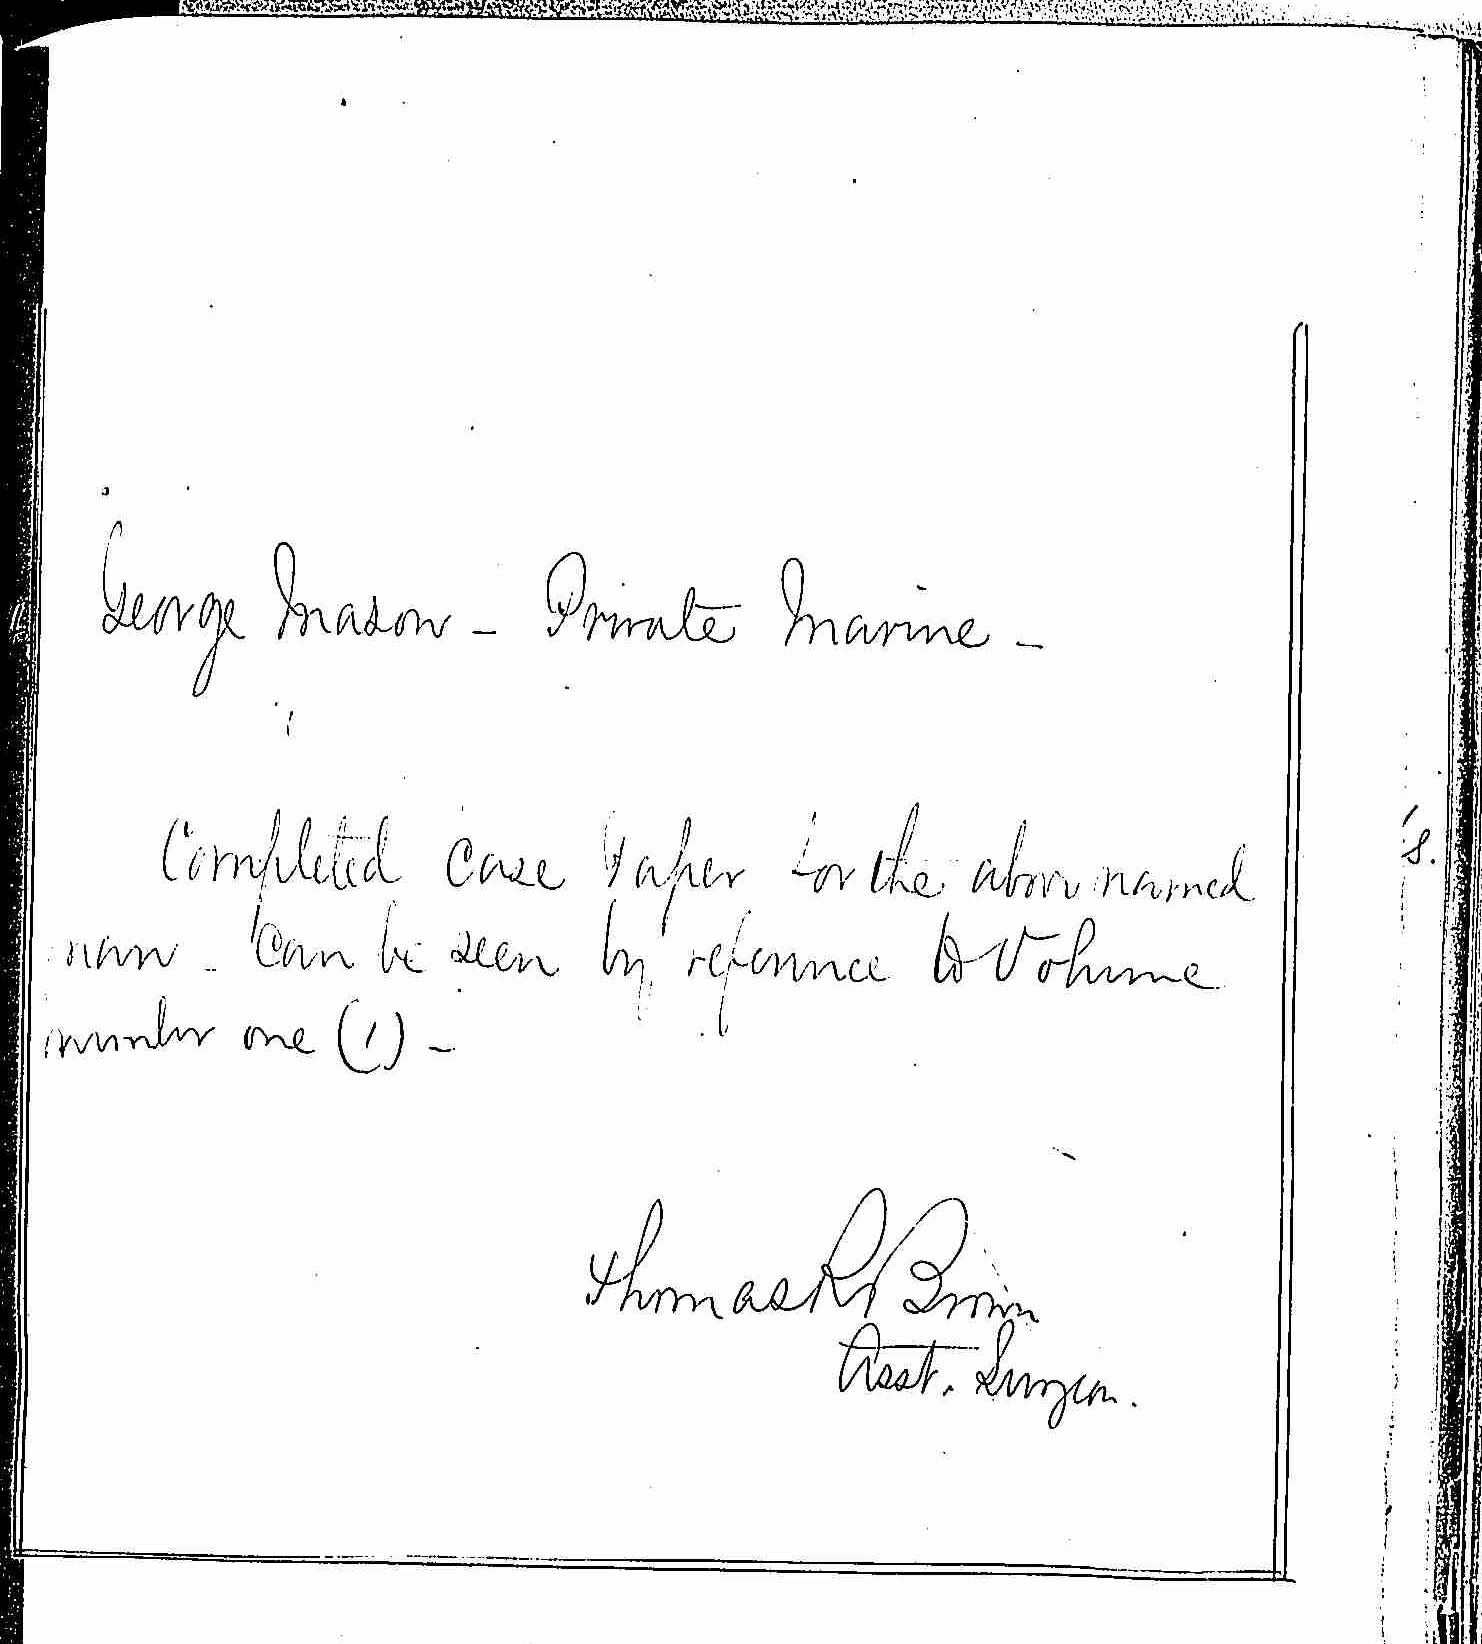 George Mason - Private Marine -
Completed case Paper for the above named
man - can be seen by reference to Volume
number one (1) -
Thomas R Brown
Asst. Surgeon.